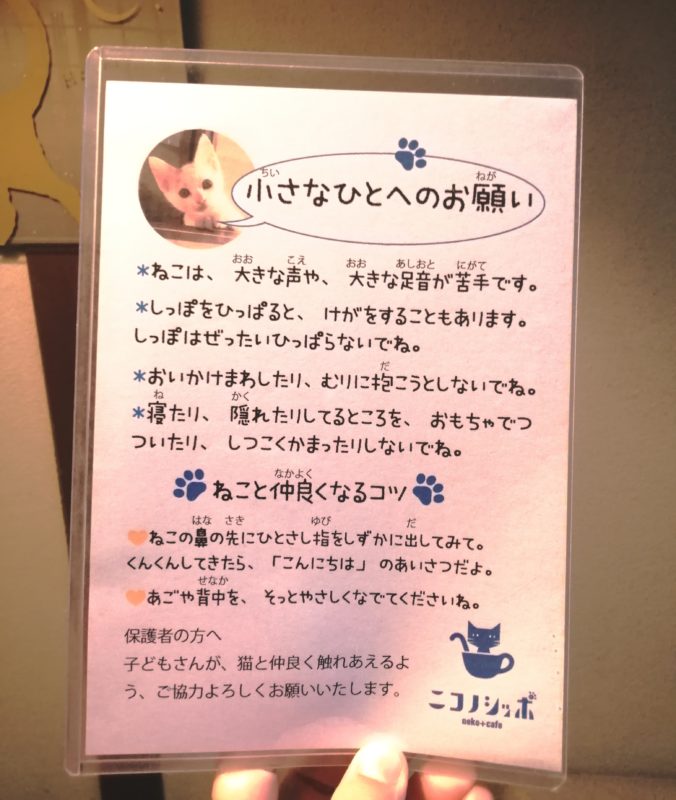 小さなひとへのお願い
*ねこは、大きな声や、大きな足音が苦手です。
*しっぽをひっぱると、けがをすることもあります。
しっぽはぜったいひっぱらないでね。
*おいかけまわしたり、むりに抱こうとしないでね。
*寝たり、隠れたりしてるところを、おもちゃでつ
ついたり、しつこくかまったりしないでね。
ねこと仲良くなるコツ
ねこの鼻の先にひとさし指をしずかに出してみて。
くんくんしてきたら、「こんにちは」のあいさつだよ。
あごや背中を、そっとやさしくなでてくださいね。
保護者の方へ
子どもさんが、猫と仲良く触れあえるよ
う、ご協力よろしくお願いいたします。
ニコノシッポ
neko+cafe